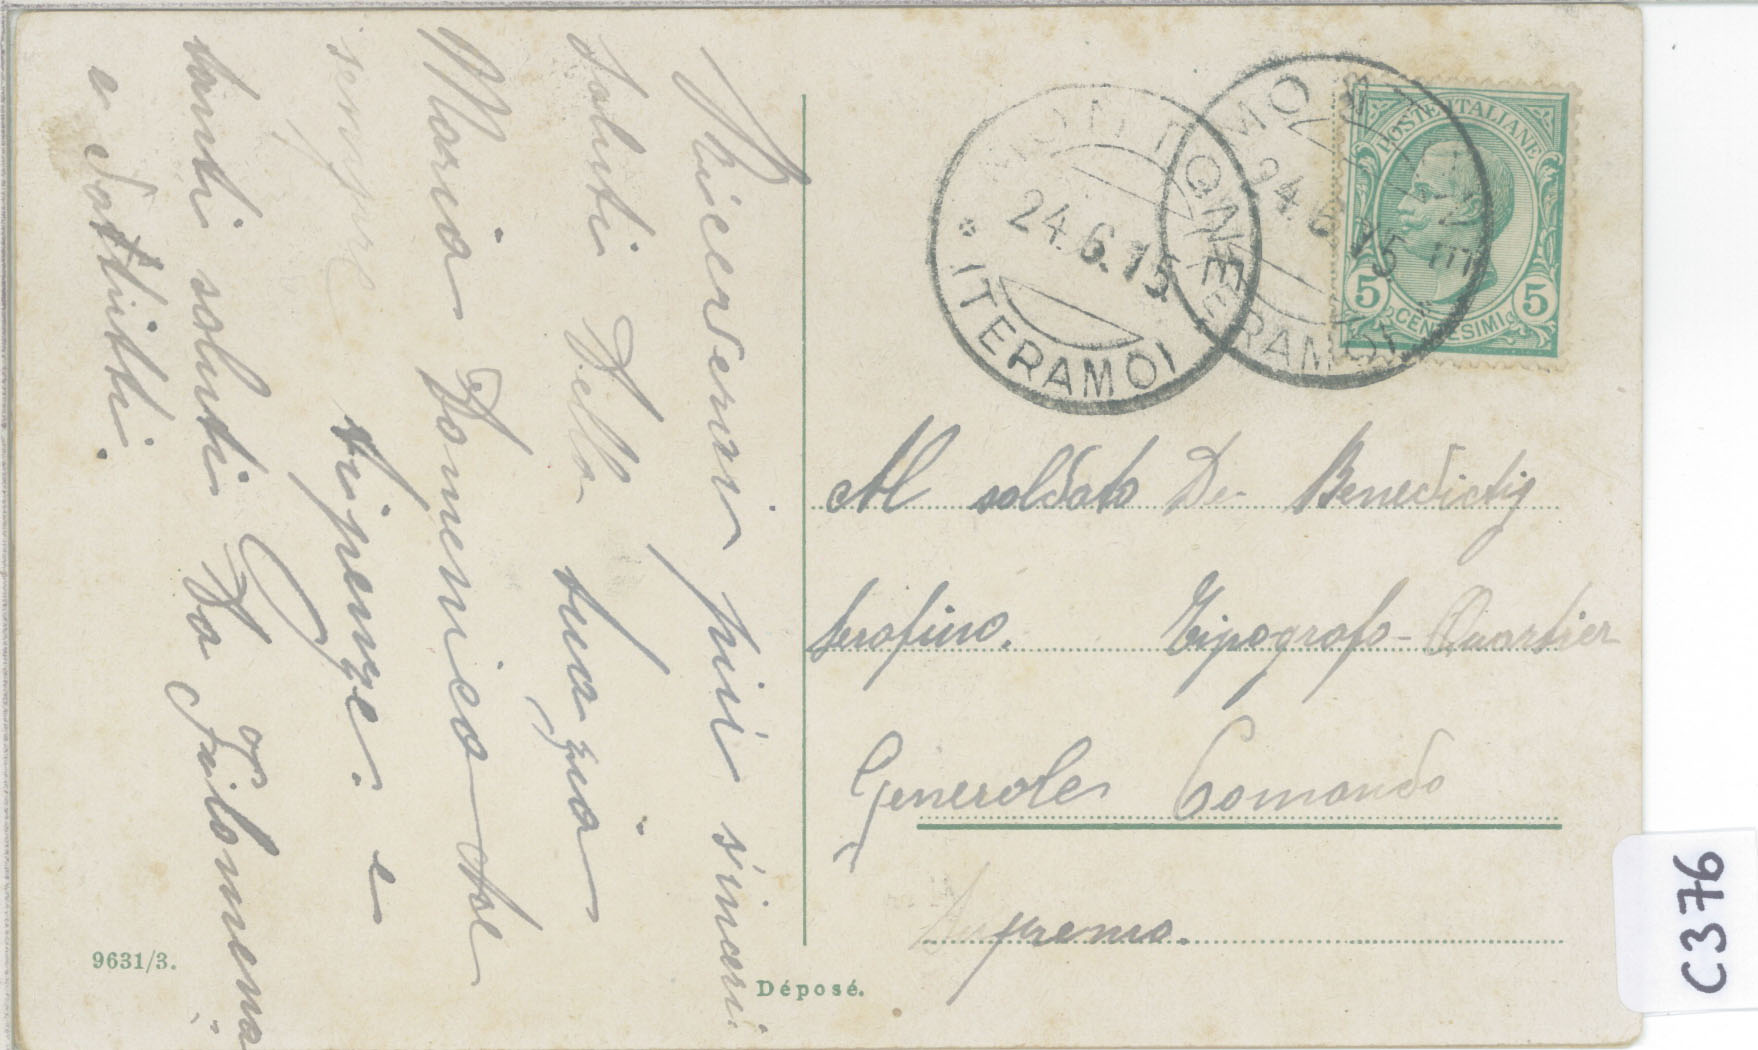 Riceverai più sinceri
saluti Della tua zia
Maria Domenica che
sempre ti penze. e
tanti saluti Da Filomena
e Dotti tutti.
MONTO
24.6.15
(TERAMO)
24.6.15
(TERAMO)
POSTE ITALIANE
5 CENTESIMI 5
Al soldato De Benedictis
Serafino. Tipografo - Quartier
Generale Comando
Supremo.
9631/3.
Déposé.
C376